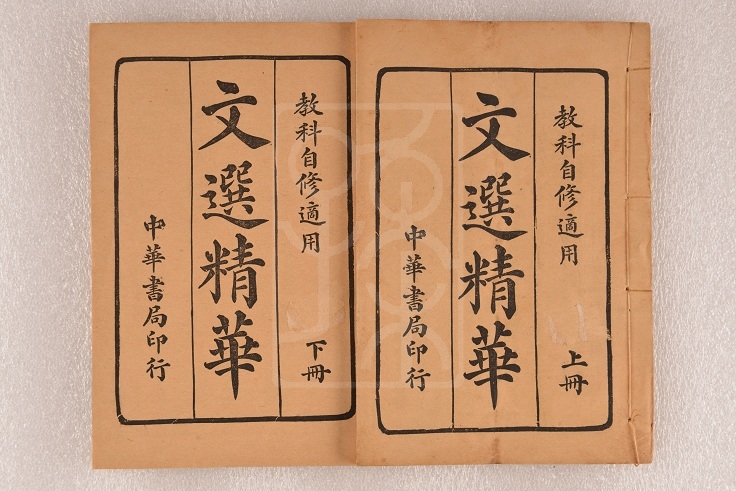 教科自修適用 上冊
文選精華
中華書局印行
教科自修適用 下冊
文選精華
中華書局印行